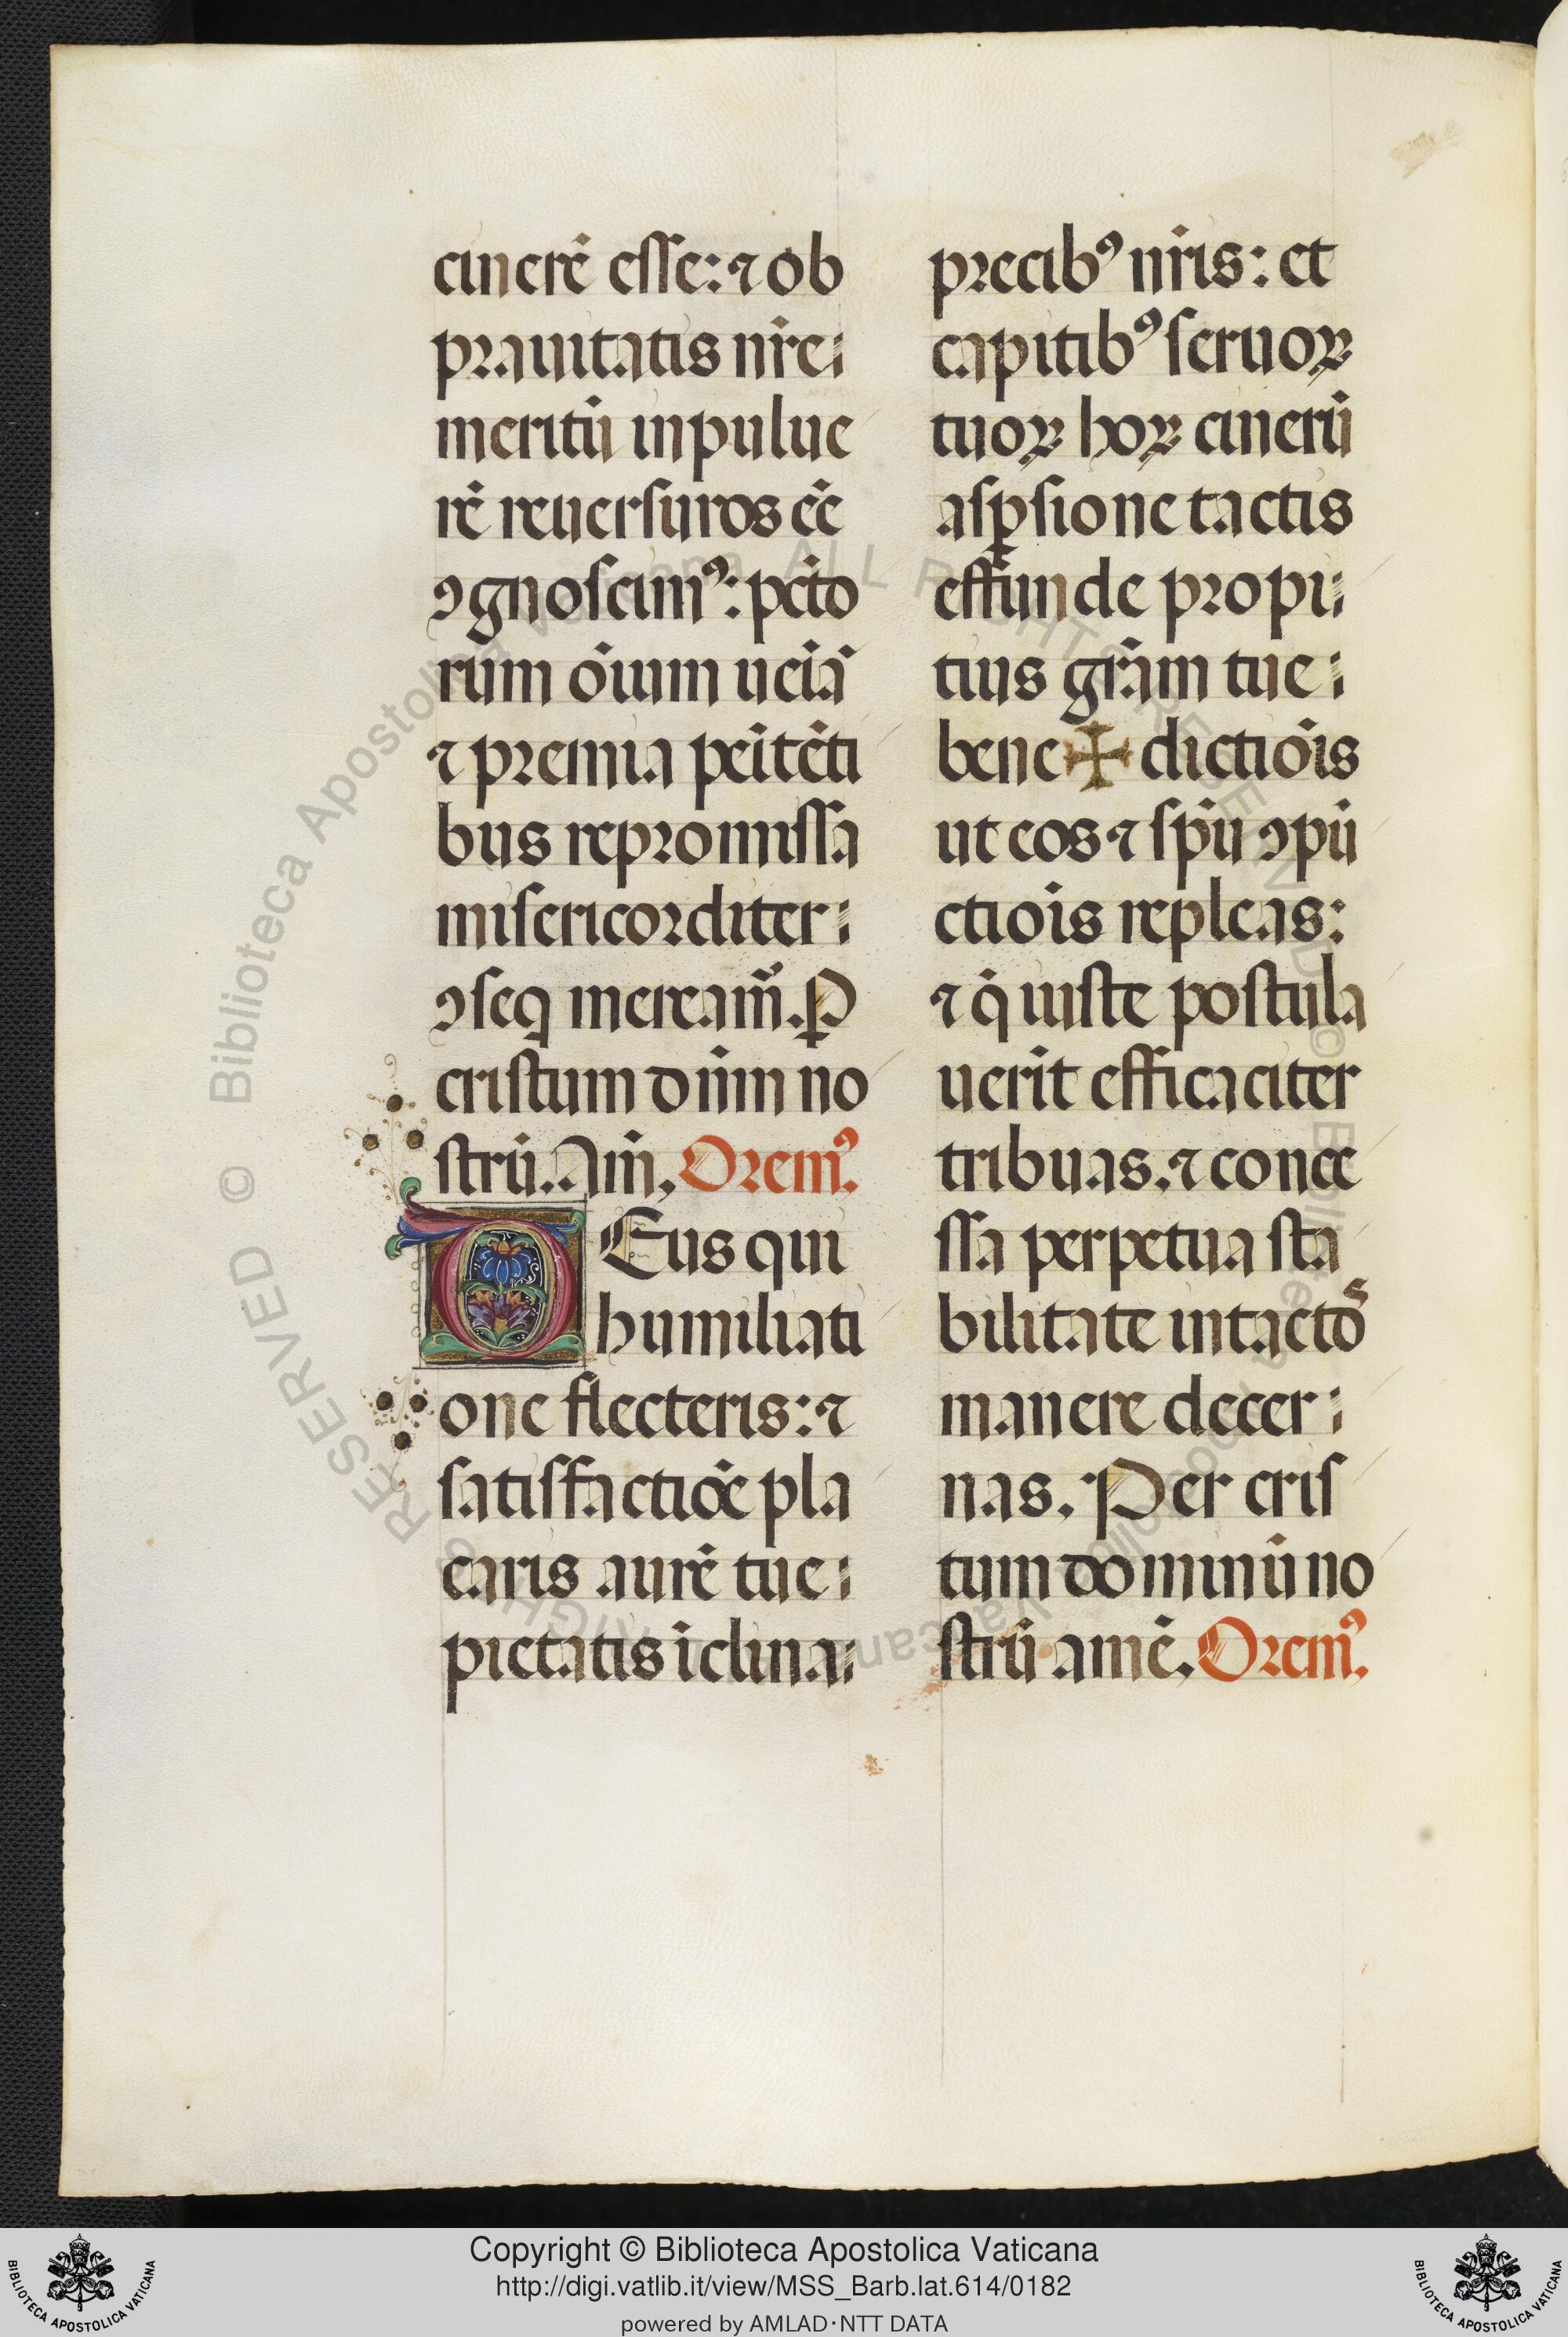 cinerē eſſe: ⁊ ob
prauitatis nr̄e
meritū in pulue
rē reuerſuros eē
ꝯgnoſcimꝰ: pctō
rum oīum ueiā
⁊ premia peitēti
bus repromiſſa
miſericorditer
ꝯſeq meream̄. P
criſtum dn̄m no
ſtrū. Am̄. Oremꝰ.
DEus qui
humiliati
one flecteris: ⁊
ſatiſfactiōe pla
caris aurē tue
pietatis īclina
precibꝰ nr̄is: et
capitibꝰ ſeruoꝝ
tuoꝝ hoꝝ cinerū
aſꝑſione tactis
effunde propi
tius grām tue
bene✠dictiōis
ut eos ⁊ ſpū ꝯpū
ctiōis repleas:
⁊ q̄ iuſte poſtula
uerīt efficaciter
tribuas. ⁊ conce
ſſa perpetua ſta
bilitate intactos
manere decer
nas. Per criſ
tum dominū no
ſtrū amē. Oremꝰ.
Biblioteca Apostolica Vaticana ALL RIGHTS RESERVED © Biblioteca Apostolica Vaticana ALL RIGHTS RESERVED ©
Copyright © Biblioteca Apostolica Vaticana
http://digi.vatlib.it/view/MSS_Barb.lat.614/0182
powered by AMLAD·NTT DATA
BIBLIOTECA APOSTOLICA VATICANA
BIBLIOTECA APOSTOLICA VATICANA